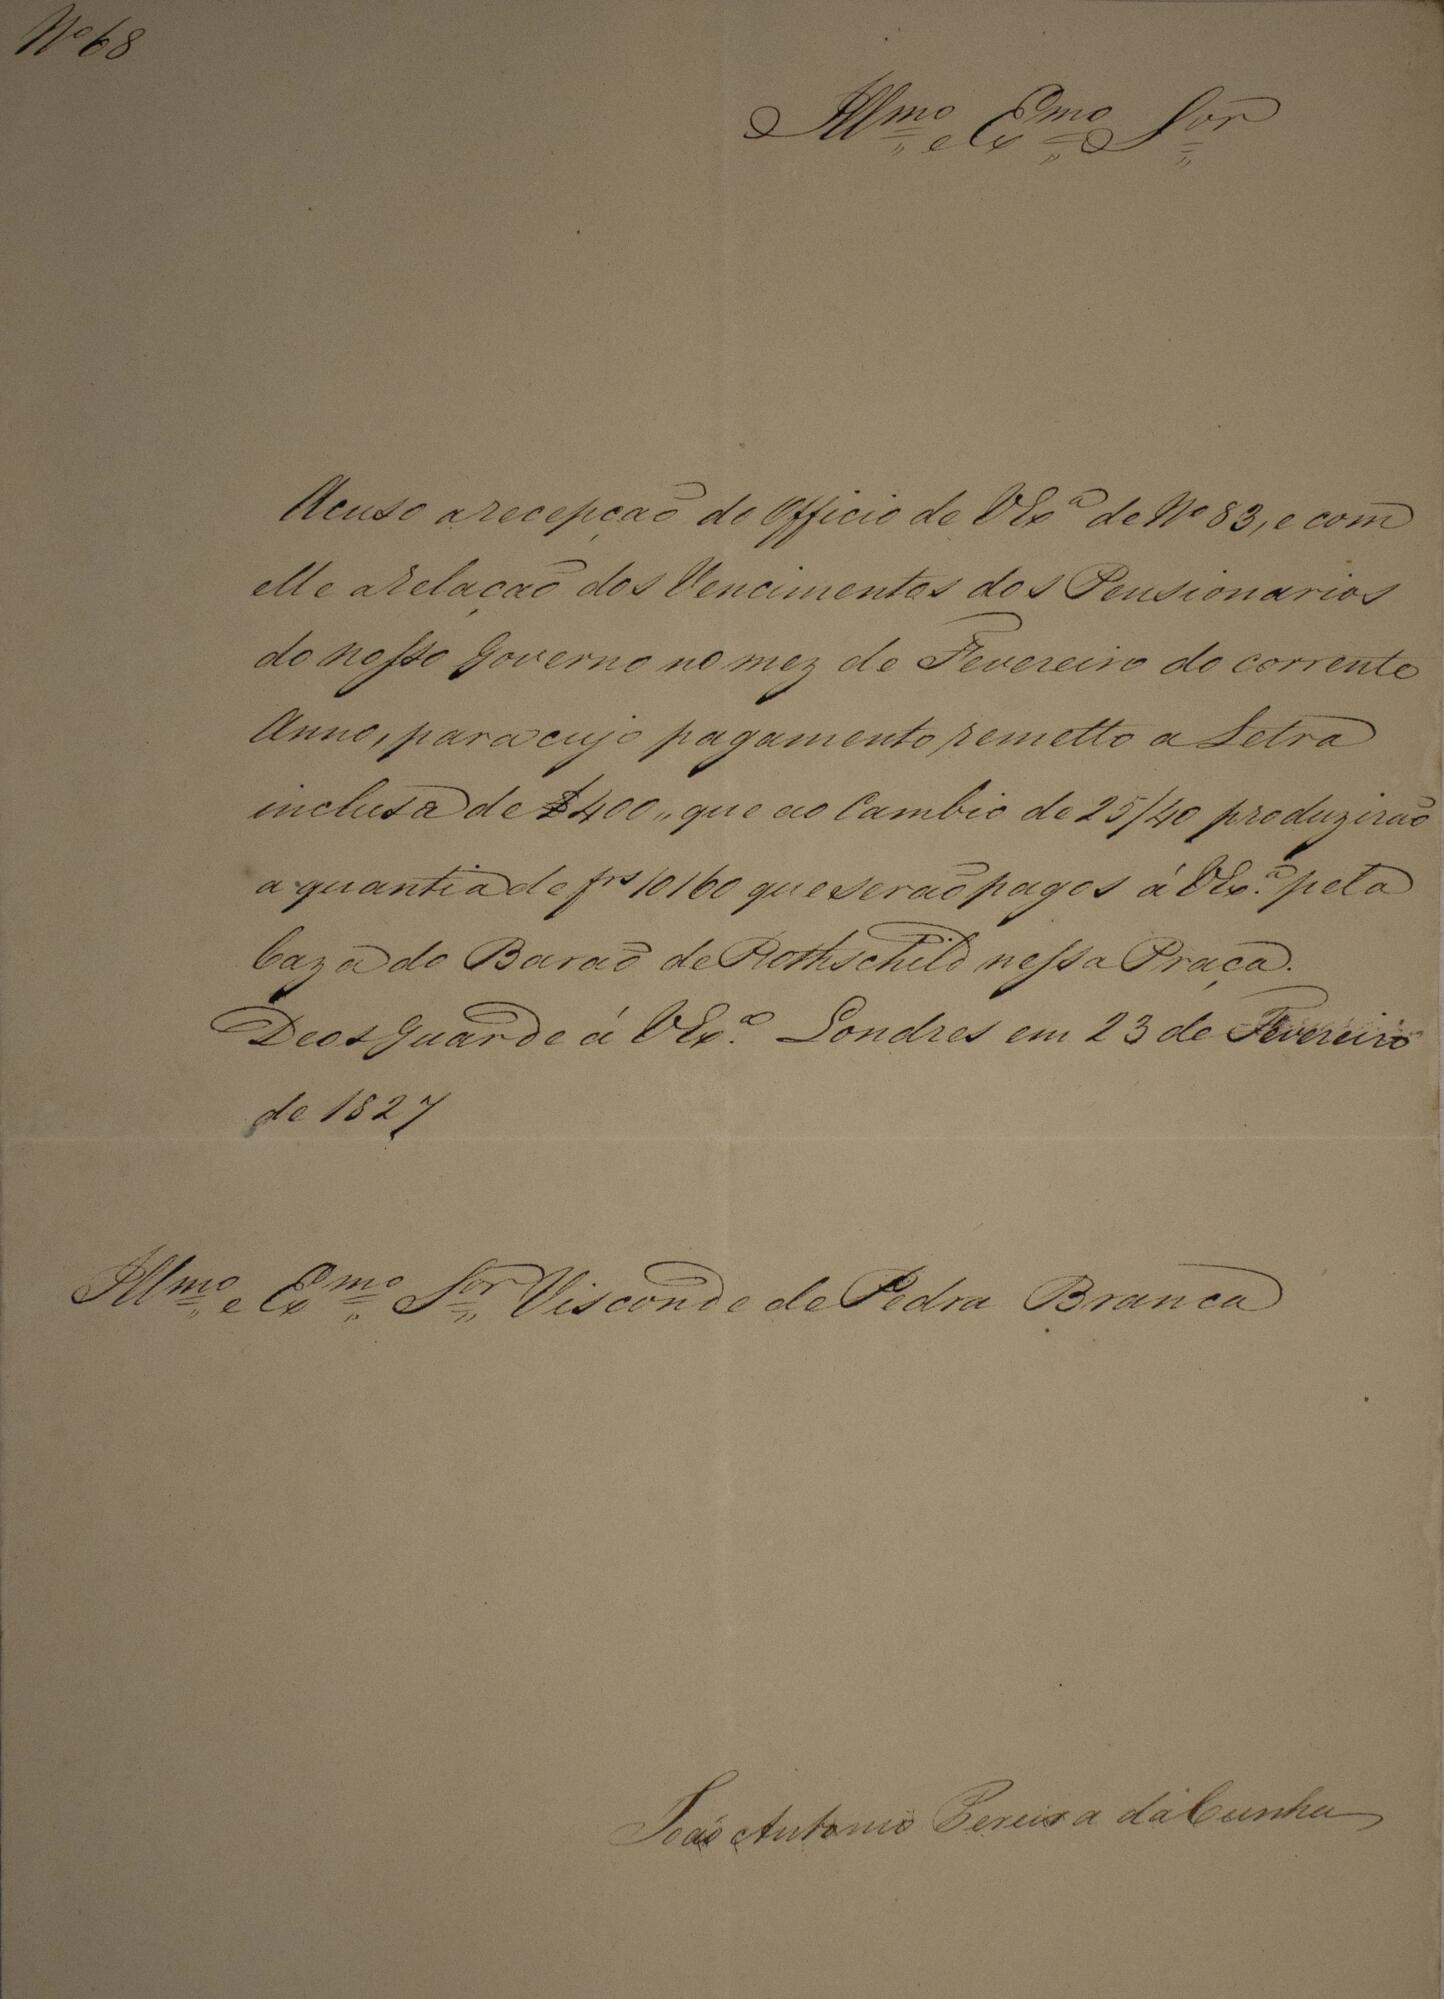 Nº 68
Illmo e Exmo Sor
Acuso a recepção do Officio de VExª de Nº 83, e com
elle a relação dos Vencimentos dos Pensionarios
do nosso Governo no mez de Fevereiro do corrente
Anno, para cujo pagamento remetto a Letra
inclusa de £400,, que ao Cambio de 25/40 produzirão
a quantia de frs 10160 que serão pagos á VExª pela
Caza do Barão de Rothschild nessa Praça.
Deos Guarde á VExª Londres em 23 de Fevereiro
de 1827
Illmo e Exmo Sor Visconde de Pedra Branca
João Antonio Pereira da Cunha